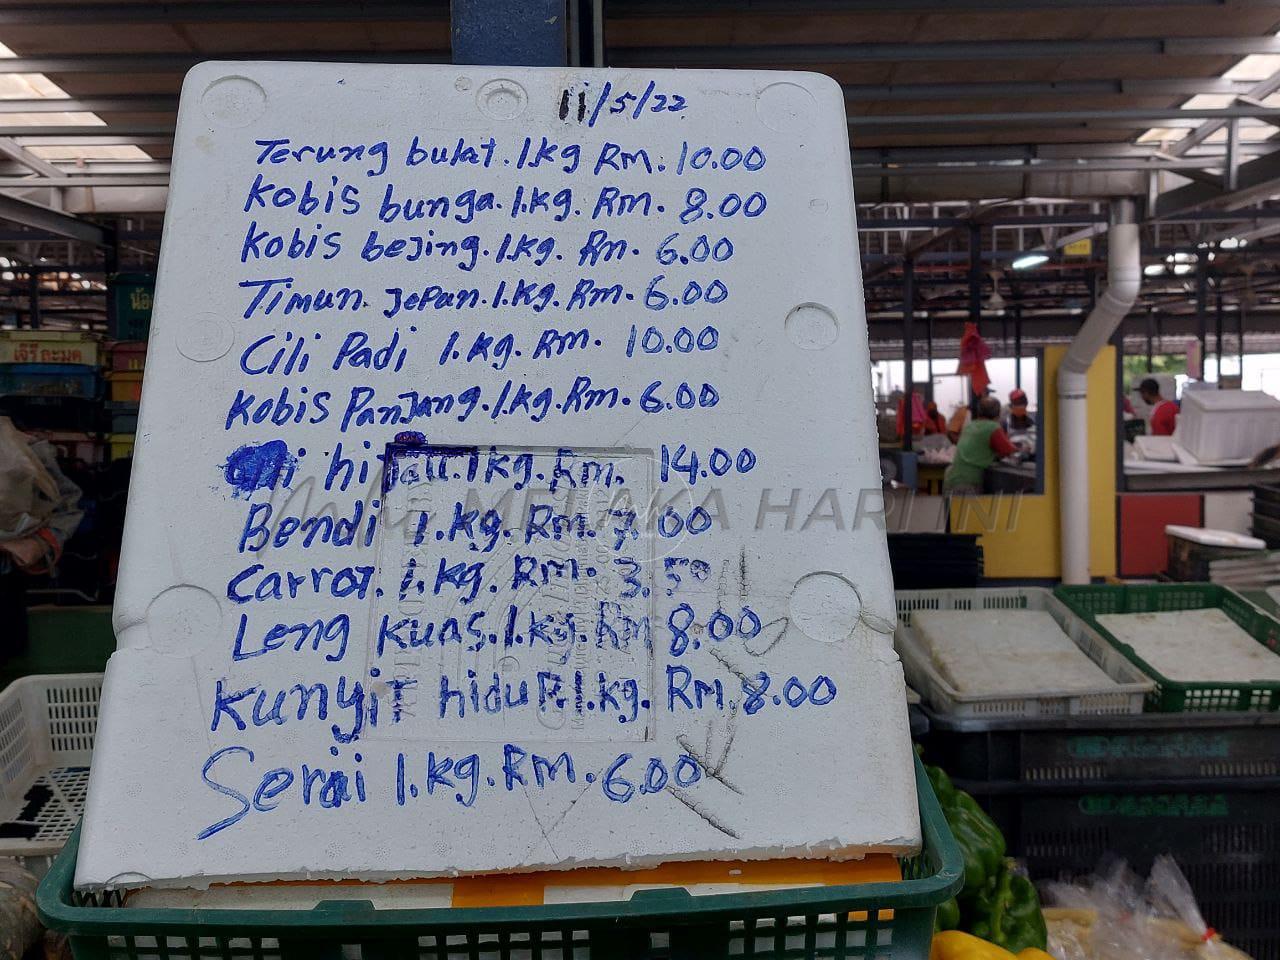 11/5/22
Terung bulat. 1.kg RM. 10.00
Kobis bunga. 1.kg. RM. 8.00
Kobis bejing. 1.kg. Rm. 6.00
Timun. Jepan. 1.kg. Rm. 6.00
Cili Padi 1.kg. RM. 10.00
Kobis Panjang. 1.kg. Rm. 6.00
hijau. 1kg. Rm. 14.00
Bendi 1.kg. Rm. 7.00
Carrot. 1.kg. RM. 3.50
Leng kuas. 1.kg. RM 8.00
Kunyit hidup. 1.kg. RM. 8.00
Serai 1.kg. RM. 6.00
MELAKA HARI INI